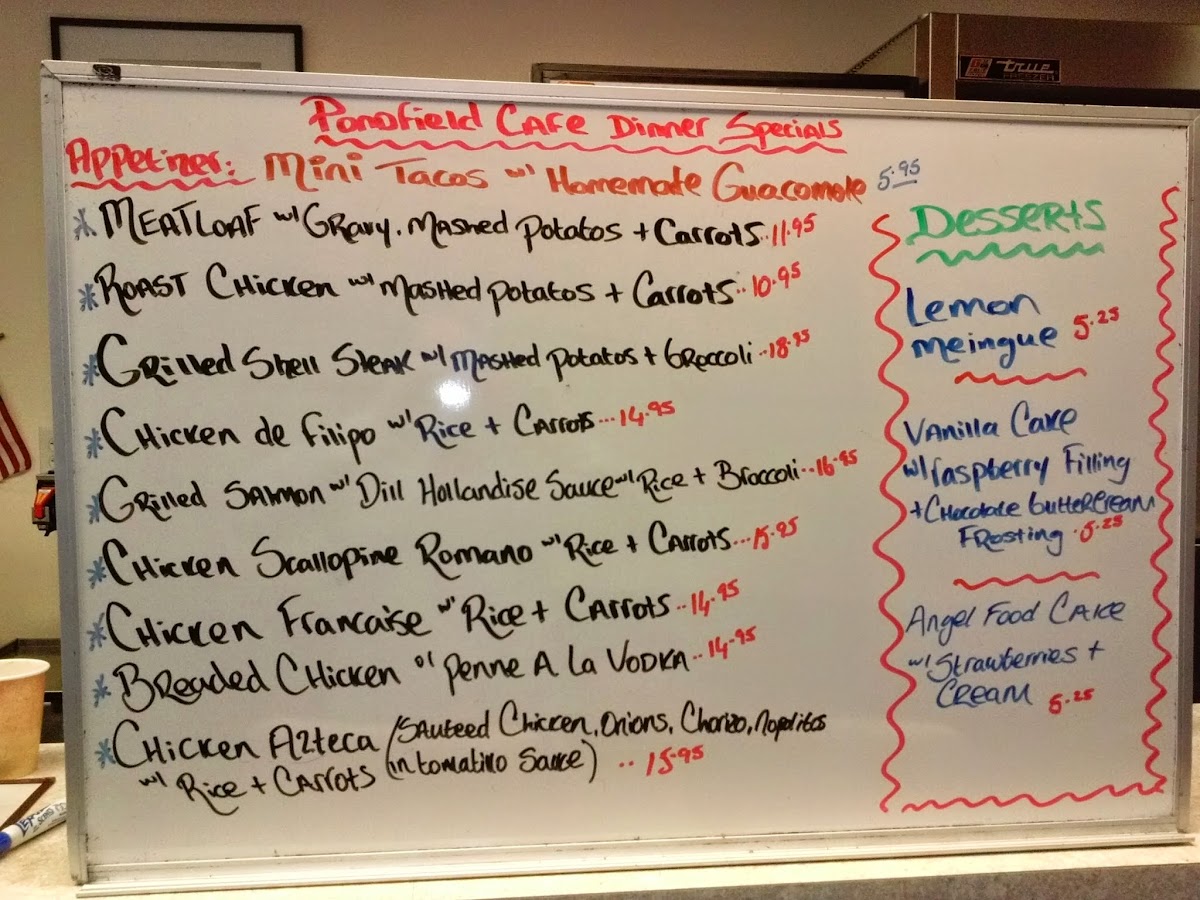 Pondfield CAFe Dinner Specials
Appetizer: Mini Tacos w/ Homemade Guacomole 5.95
* MEATLOAF w/ GRavy, Mashed Potatos + Carrots..11.95
* ROAST CHicken w/ Mashed potatos + Carrots.. 10.95
* GRilled Shell Steak w/ Mashed Potatos + Broccoli..18.95
* CHicken de Filipo w/ Rice + Carrots...14.95
* GRilled Salmon w/ Dill Hollandise Sauce w/ Rice + Broccoli..16.95
* CHicken Scallopine Romano w/ Rice + Carrots...15.95
* CHicken Francaise w/ Rice + Carrots..14.95
* BReaded CHicken o/ Penne A La VODKA..14.95
* CHicken Azteca (Sauteed Chicken, Onions, Chorizo, Nopalitos
w/ Rice + Carrots in tomatillo Sauce) ..15.95
Desserts
Lemon
Meingue 5.25
VAnilla Cake
w/ raspberry Filling
+ CHocolate ButterCream
FRosting .5.25
Angel Food CAKe
w/ Strawberries +
CReam 5.25
true
FREEZER